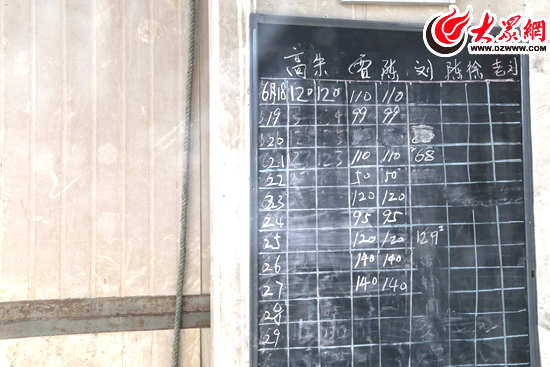 大众網
WWW.DZWWW.COM
高 朱 雷 陈 刘 陈 徐
6月18 120 120 110 110
19 99 99
20
21 110 110 68
22 50 50
23 120 120
24 95 95
25 120 120 129²
26 140 140
27 140 140
28
29